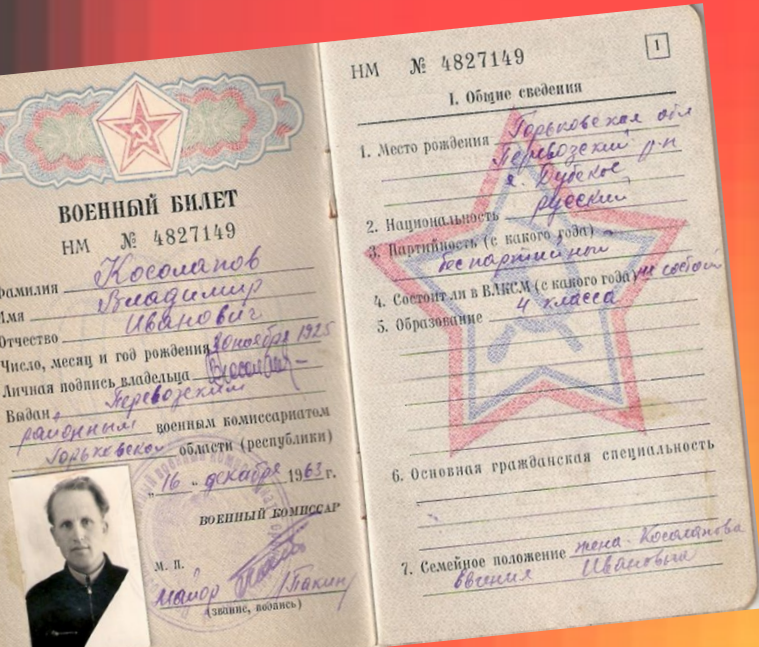 ВОЕННЫЙ БИЛЕТ
НМ № 4827149
Фамилия Косолапов
Имя Владимир
Отчество Иванович
Число, месяц и год рождения ноября 1925
Личная подпись владельца
Выдан Перевозским
районным военным комиссариатом
Горьковской области (республики)
„16" декабря 1963 г.
ВОЕННЫЙ КОМИССАР
М. П.
майор /Пакин/
(звание, подпись)
НМ № 4827149
1
I. Общие сведения
1. Место рождения Горьковская обл
Перевозский р-н
д. Дубское
2. Национальность русский
3. Партийность (с какого года)
беспартийный
4. Состоит ли в ВЛКСМ (с какого года) не состоит
5. Образование 4 класса
6. Основная гражданская специальность
7. Семейное положение жена Косолапова
Ивановна